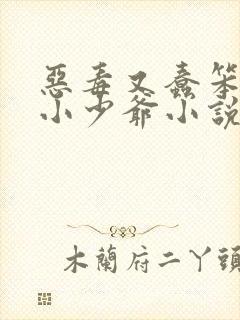 惡毒又蠢笨
小少爺小說
木蘭府二丫頭